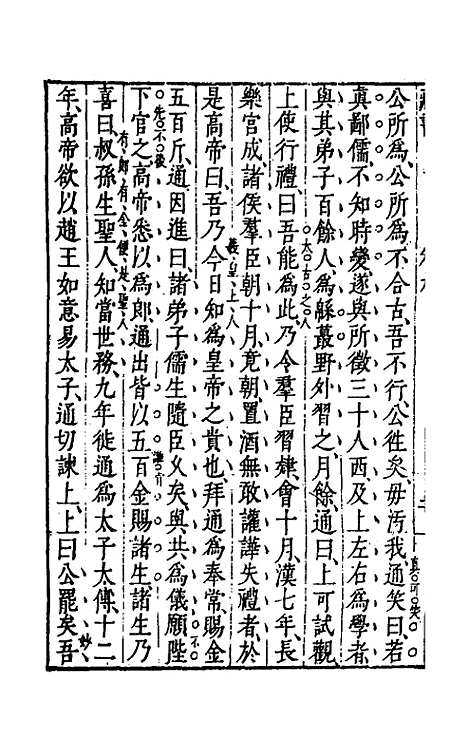 公所爲公所爲不合古吾不行公徃矣毋汚我通笑曰若
真可笑
真鄙儒不知時變遂與所徵三十人西及上左右爲學者
與其弟子百餘人爲緜蕞野外習之月餘通曰上可試觀
上使行禮曰吾能爲此乃令羣臣習肄會十月漢七年長
樂宮成諸侯羣臣朝十月竟朝置酒無敢讙譁失禮者於
是高帝曰吾乃今日知爲皇帝之貴也拜通爲奉常賜金
五百斤通因進曰諸弟子儒生隨臣乆矣與共爲儀願陛
下官之高帝悉以爲郎通出皆以五百金賜諸生諸生乃
有郎有金便是聖人
喜曰叔孫生聖人知當世務九年徙通爲太子太傳十二
年高帝欲以趙王如意易太子通切諫上上曰公罷矣吾
妙